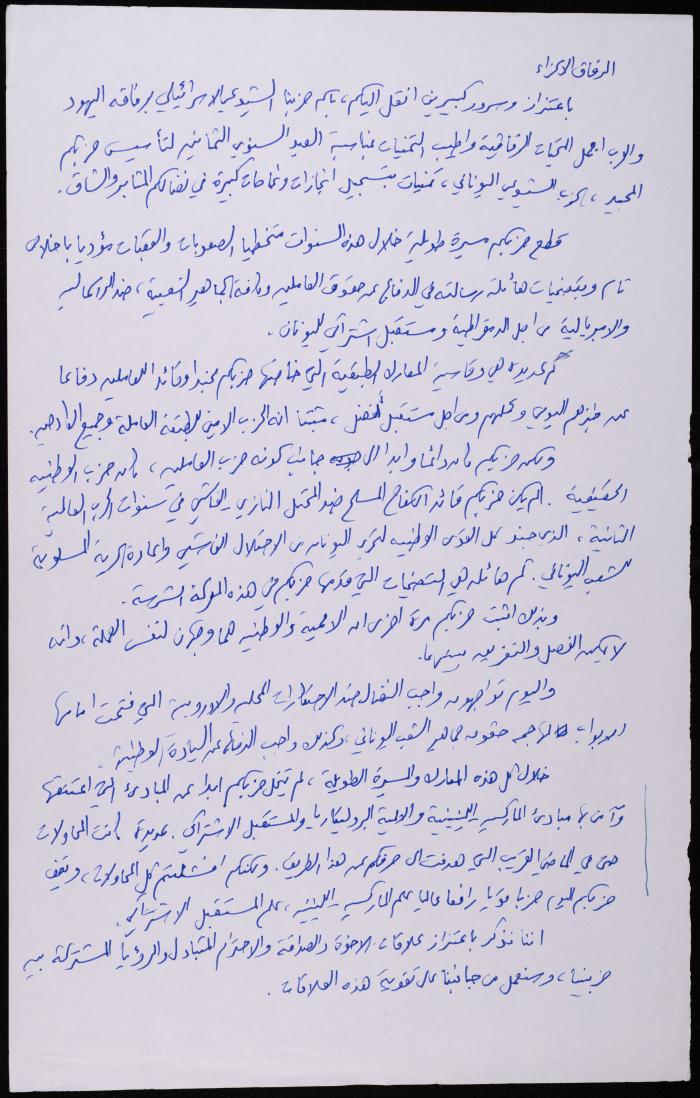 الرفاق الاعزاء
باعتزاز وسرور كبيرين انقل اليكم، باسم حزبنا الشيوعي الاسرائيلي برفاقه اليهود
والعرب اجمل التحيات الرفاقية واطيب التمنيات بمناسبة العيد السنوي الثمانين لتأسيس حزبكم
المجيد، الحزب الشيوعي اليوناني، تمنيات بتسجيل انجازات ونجاحات كبيرة في نضالكم المثابر والشاق.
قطع حزبكم مسيرة طويلة خلال هذه السنوات متخطيا الصعوبات والعقبات مؤديا باخلاص
تام وبتضحيات هائلة رسالته في الدفاع عن حقوق العاملين وكافة الجماهير الشعبية، ضد الرأسمالية
والامبريالية من اجل الدمقراطية ومستقبل اشتراكي لليونان.
كم عديدة هي وقاسية المعارك الطبقية التي خاضها حزبكم مجندا وقائدا للعاملين دفاعا
عن خبزهم اليومي وعملهم ومن اجل مستقبل أفضل، مثبتا انه الحزب الامين للطبقة العاملة وجميع الكادحين.
ولكن حزبكم كان دائما وابدا الى جانب كونه حزب العاملين، كان حزب الوطنية
الحقيقية. الم يكن حزبكم قائد الكفاح المسلح ضد المحتل النازي الفاشي في سنوات الحرب العالمية
الثانية، الذي جند كل القوى الوطنية لتحرير اليونان من الاحتلال الفاشي واعادة الحرية المسلوبة
للشعب اليوناني. كم هائلة هي التضحيات التي قدمها حزبكم في هذه المعركة الشرسة.
وبذلك اثبت حزبكم مرة اخرى ان الاممية والوطنية هما وجهان لنفس العملة، وانه
لا يمكن الفصل والتفريق بينهما.
واليوم تواجهون واجب النضال ضد الاحتكارات المحلية والاوروبية التي فتحت امامها
الابواب لمهاجمة حقوق جماهير الشعب اليوناني، وكذلك واجب الدفاع عن السيادة الوطنية.
خلال كل هذه المعارك والمسيرة الطويلة، لم يتخل حزبكم ابدا عن المبادئ التي اعتنقها
وآمن بها مبادئ الماركسية اللينينية والاممية البروليتارية والمستقبل الاشتراكي. عديدة كانت المحاولات
حتى في الماضي القريب التي هدفت الى حرفكم عن هذا الطريق. ولكنكم افشلتم كل المحاولات، ويقف
حزبكم اليوم حزبا قويا رافعا عاليا علم الماركسية اللينينية، علم المستقبل الاشتراكي.
اننا نذكر باعتزاز علاقات الاخوة والصداقة والاحترام المتبادل والرؤيا المشتركة بين
حزبينا، وسنعمل من جانبنا على تقوية هذه العلاقات.